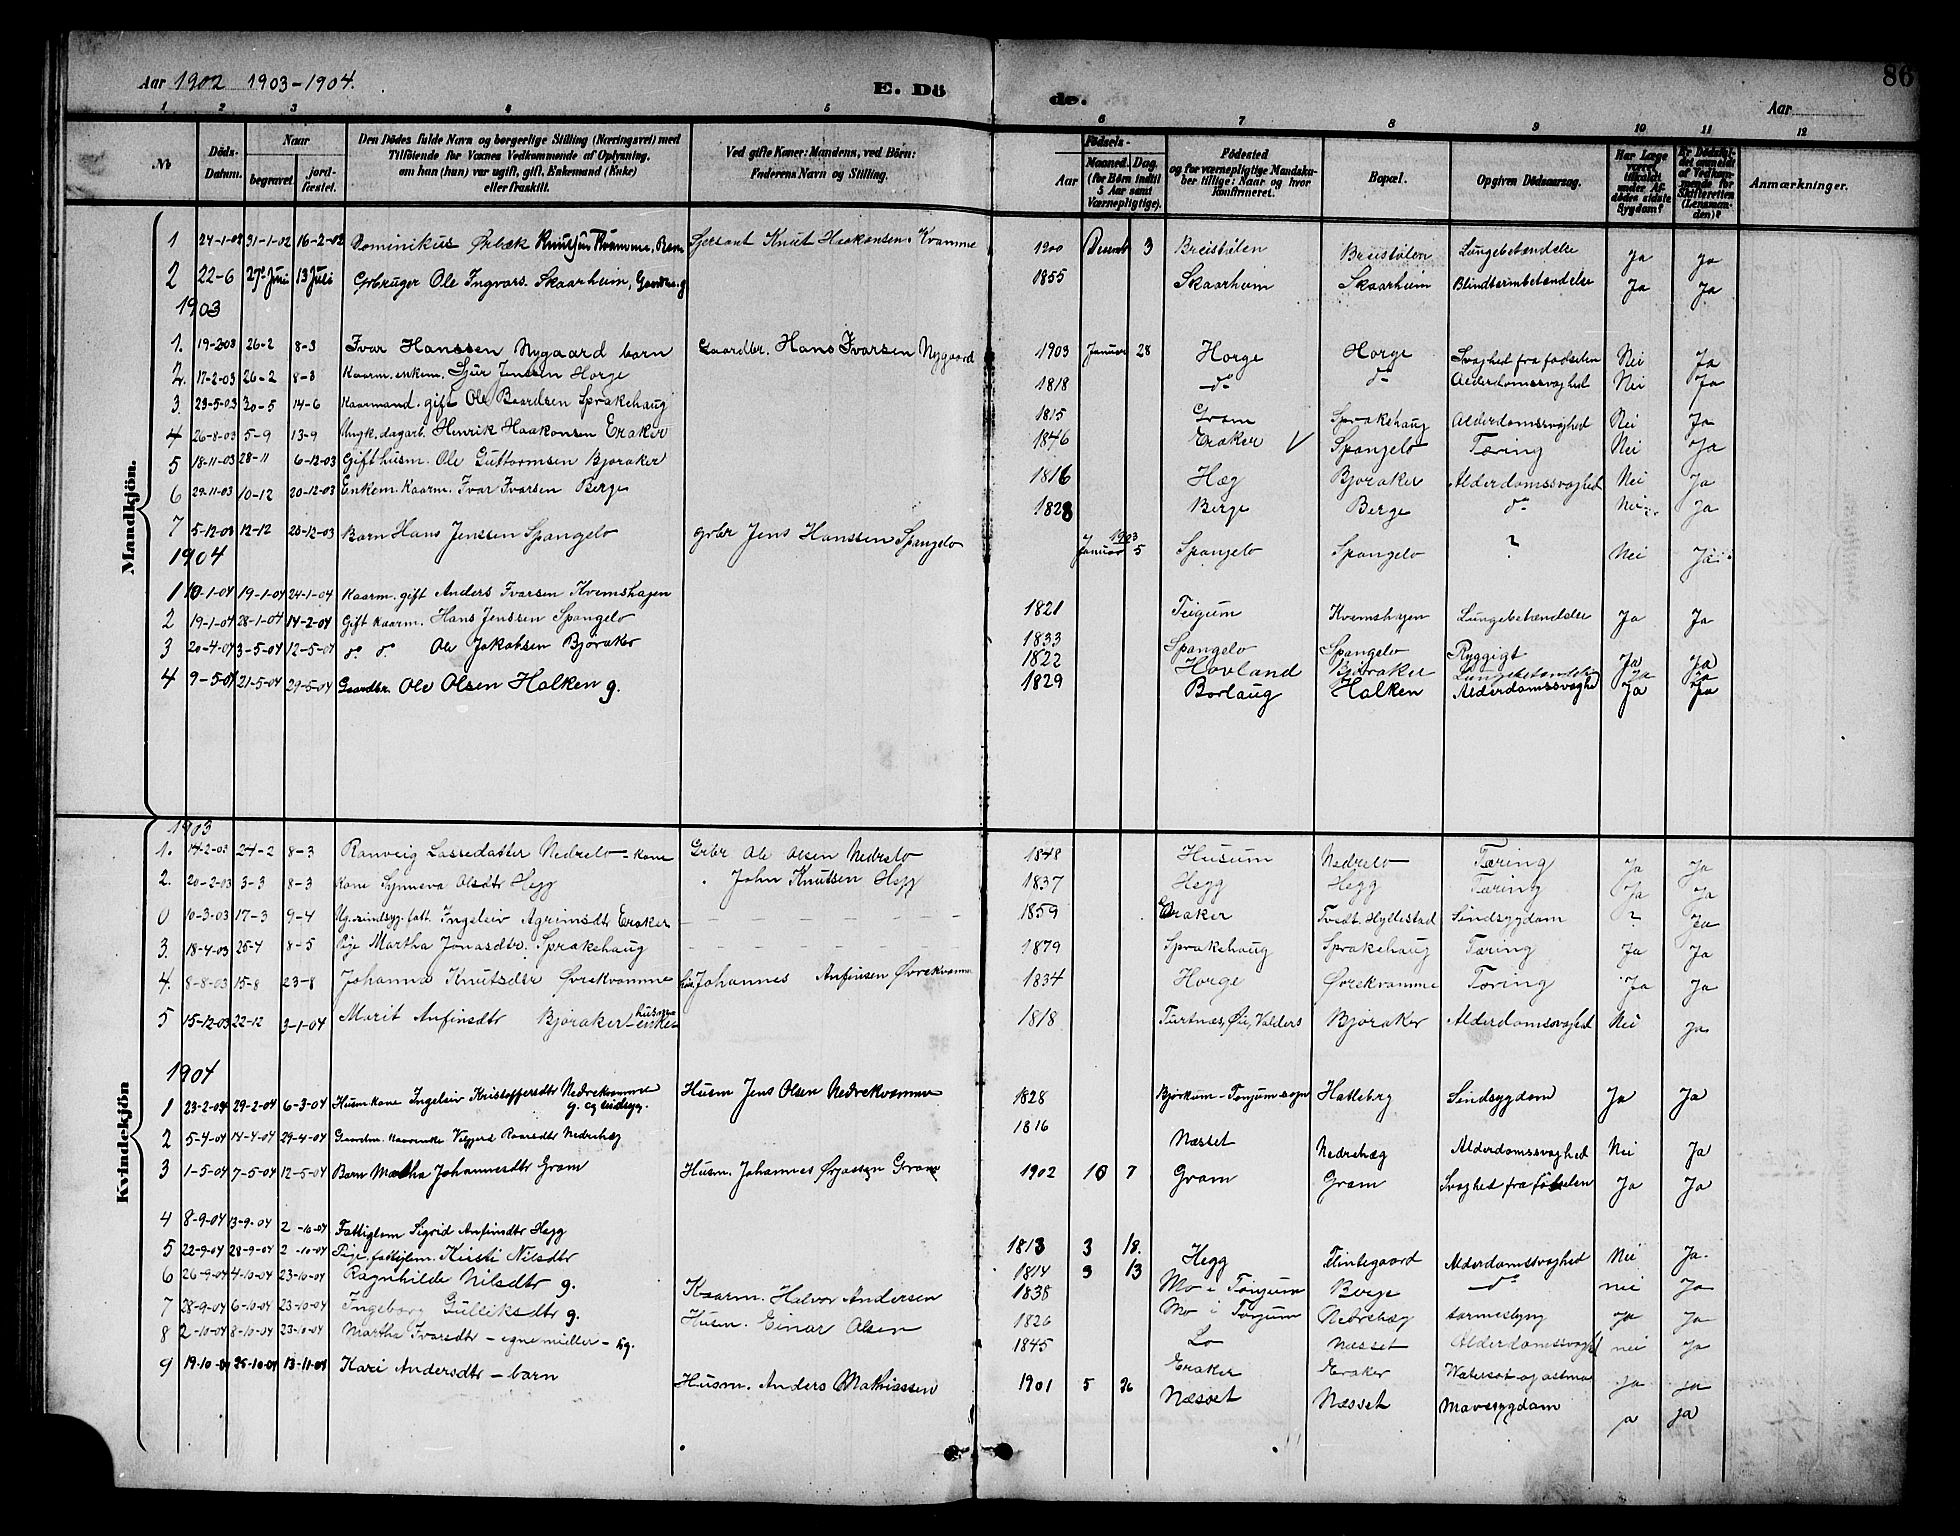 Aar 1902 1903-1904.
E. Dö
de.
Aar
86
1 2 3 4 5 6 7 8 9 10 11 12
No
Döds-Datum.
Naar
begravet
jordfæstet.
Den Dödes fulde Navn og borgerlige Stilling (Næringsvei) med Tilföiende for Voxnes Vedkommende af Oplysning, om hun (han) var ugift, gift, Enkemand (Enke) eller fraskilt.
Ved gifte Koner: Mandens, ved Börn: Faderens Navn og Stilling.
Födsels-
Aar
Maaned. Dag.
(for Börn indtil 5 Aar samt Værnepligtige).
Födested og for værnepligtige Mandskaber tillige: Naar og hvor konfirmeret.
Bopæl.
Opgiven Dödsaarsag.
Har Læge været tilkaldt under Afdödes sidste Sygdom?
Er Dödsfaldet anmeldt af Vedkommende for Skifteretten (Lensmanden)?
Anmærkninger.
Mandkjön.
1 24-1-02 31-1-02 16-2-02 Dominikus Ørbæk Knutsen Kvamme, Barn Sersant Knut Haakonsen Kvamme 1900 3 Breistølen Breistølen Lungebetændelse Ja Ja
2 22-6 27de Juni 13 Juli Grbruger Ole Ingvars. Skaarheim, 1855 Skaarheim Skaarheim Blindtarmbetændelse Ja Ja
1903
1. 19-2-03 26-2 8-3 Ivar Hanssen Nygaard barn Gaardbr. Hans Ivarsen Nygaard 1903 Januar 28 Horge Horge Svaghed fra fødselen Nei Ja
2. 17-2-03 26-2 8-3 Kaarm. enkem. Sjur Jenssen Horge 1818 do do Alderdomssvaghed Nei Ja
3. 23-5-03 30-5 14-6 Kaarmand. gift Ole Baardsen Sprakehaug 1815 Gram Sprakehaug Alderdomssvaghed Nei Ja
4 26-8-03 5-9 13-9 Ungk. dagarb. Henrik Haakonsen Eraker 1846 Eraker V Spangelo Tæring Nei Ja
5 18-11-03 28-11 6-12-03 Gift husm. Ole Guttormsen Bjøraker 1816 Hæg Bjøraker Alderdomssvaghed Nei Ja
6 29-11-03 10-12 20-12-03 Enkem. Kaarm. Ivar Ivarsen Berge 1828 Berge Berge do Nei Ja
7 5-12-03 12-12 20-12-03 Barn Hans Jenssen Spangelo grbr Jens Hanssen Spangelo 1903 Januar 5 Spangelo Spangelo ? Nei Ja
1904
1 10-1-04 19-1-04 24-1-04 Kaarm. gift Anders Ivarsen Kvemshagen 1821 Teigum Kvemshagen Lungebetændelse Ja Ja
2 19-1-04 28-1-04 14-2-04 Gift kaarm. Hans Jenssen Spangelo 1833 Spangelo Spangelo Ryggigt Ja Ja
3 20-4-04 3-5-04 12-5-04 do do Ole Jakobsen Bjøraker 1822 Hovland Bjøraker Lungebetændelse Ja Ja
4 9-5-04 21-5-04 29-5-04 Gaardbr. Ole Olsen Halken g. 1829 Borlaug Halken Alderdomssvaghed Ja Ja
Kvindekjön
1903
1. 14-2-03 24-2 8-3 Ranveig Lassedatter Nedrelo - kone Grbr Ole Olsen Nedrelo 1848 Husum Nedrelo Tæring Ja Ja
2. 20-2-03 3-3 8-3 Kone Synneva Olsdtr Hegg John Knutsen Hegg 1837 Hegg Hegg Tæring Ja Ja
0 10-3-03 17-3 9-4 Ug. sindsyg. fatt. Ingeleiv Agrimsdtr Eraker 1859 Eraker Tvedt. Hyllestad Sindsygdom ? Ja
3. 18-4-03 25-4 8-5 Pige Martha Jonasdtr. Sprakehaug 1879 Sprakehaug Sprakehaug Tæring Ja Ja
4. 8-8-03 15-8 23-8 Johanna Knutsdtr Øvrekvamme Johannes Anfinsen Øvrekvamme 1834 Horge Øvrekvamme Tæring Ja Ja
5 15-12-03 22-12 3-1-04 Marit Anfinsdtr Bjøraker - husm enke 1818 Turtnæs, Øie, Valders Bjøraker Alderdomssvaghed Nei ja
1904
1 23-2-04 29-2-04 6-3-04 Husmkone Ingeleiv Kristoffersdtr Nedrekvamme g. og sindsyg. Husm Jens Olsen Nedrekvamme 1828 Bjørkum - Tønjumsogn Hatleberg Sindsygdom Ja Ja
2 5-4-04 14-4-04 29-4-04 Gaardm. kaarenke Nedrehæg 1816 Næsset Nedrehæg Alderdomssvaghed Nei Ja
3 1-5-04 7-5-04 12-5-04 Barn Martha Johannesdtr Gram Husm. Johannes Ørjassen Gram 1902 10 7 Gram Gram Svaghed fra fødselen Ja Ja
4 8-9-04 13-9-04 2-10-04 Fattiglem Sigrid Anfinsdtr Hegg 1813 3 18. Hegg Flintegaard Alderdomssvaghed Nei Ja
5 22-9-04 28-9-04 2-10-04 Pige, fattiglm. Kirsti Nilsdtr 1814 3 13 Mo i Tønjum Borge do nei Ja
6 26-9-04 4-10-04 23-10-04 Ragnhilde Nilsdtr g. Kaarm. Halvor Andersen 1838 Mo i Tønjum Nedrehæg tarmeslyng ja Ja
7 28-9-04 6-10-04 23-10-04 Ingeborg Gulliksdtr g. Husm. Einar Olsen 1826 Lo Næsset Alderdomssvaghed nei ja
8 2-10-04 8-10-04 23-10-04 Martha Ivarsdtr - egne midler - ug. 1845 Eraker Eraker Watersot og astma ja ja
9 19-10-04 25-10-04 13-11-04 Kari Andersdtr - barn Husm. Anders Mathiassen 1901 5 26 Næsset Næsset Mavesygdom ja ja